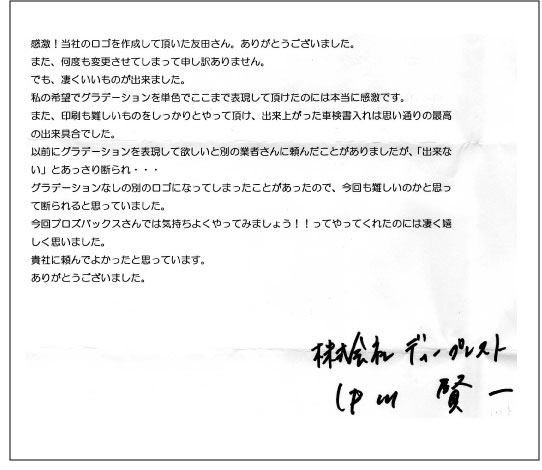 感激！当社のロゴを作成して頂いた友田さん。ありがとうございました。
また、何度も変更させてしまって申し訳ありません。
でも、凄くいいものが出来ました。
私の希望でグラデーションを単色でここまで表現して頂けたのには本当に感激です。
また、印刷も難しいものをしっかりとやって頂け、出来上がった車検書入れは思い通りの最高
の出来具合でした。
以前にグラデーションを表現して欲しいと別の業者さんに頼んだことがありましたが、「出来な
い」とあっさり断られ・・・
グラデーションなしの別のロゴになってしまったことがあったので、今回も難しいのかと思っ
て断られると思っていました。
今回プロズバックスさんでは気持ちよくやってみましょう！！ってやってくれたのには凄く嬉
しく思いました。
貴社に頼んでよかったと思っています。
ありがとうございました。
株式会社 ディーグレスト
賢一